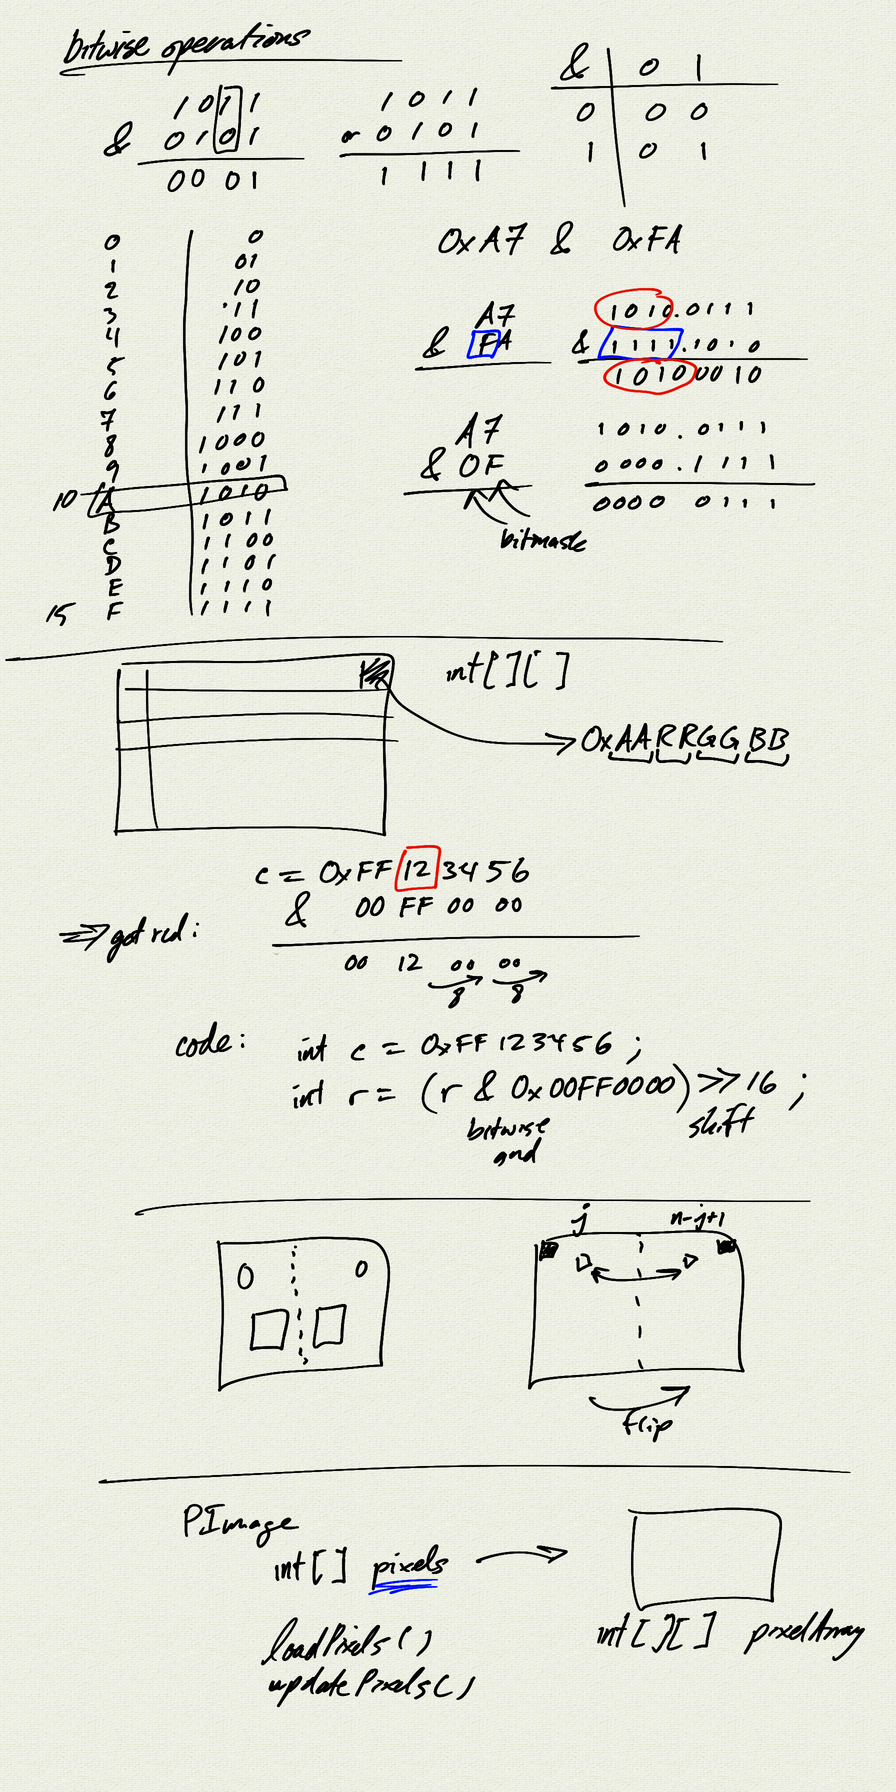 bitwise operations
1 0 1 1
& 0 1 0 1
0 0 0 1
1 0 1 1
or 0 1 0 1
1 1 1 1
& | 0 1
0 | 0 0
1 | 0 1
0 | 0
1 | 01
2 | 10
3 | 11
4 | 100
5 | 101
6 | 110
7 | 111
8 | 1000
9 | 1001
10 A | 1010
B | 1011
C | 1100
D | 1101
E | 1110
15 F | 1111
0xA7 & 0xFA
A7
& FA
1010.0111
& 1111.1010
1010 0010
A7
& 0F
bitmask
1010.0111
0000.1111
0000 0111
int[][]
0xAARRGGBB
c = 0xFF 12 34 56
& 00 FF 00 00
=> get red:
00 12 00 00
8 8
code: int c = 0xFF123456;
int r = (r & 0x00FF0000) >> 16;
bitwise and
shift
j n-j+1
flip
PImage
int[] pixels
loadPixels()
updatePixels()
int[][] pixelArray